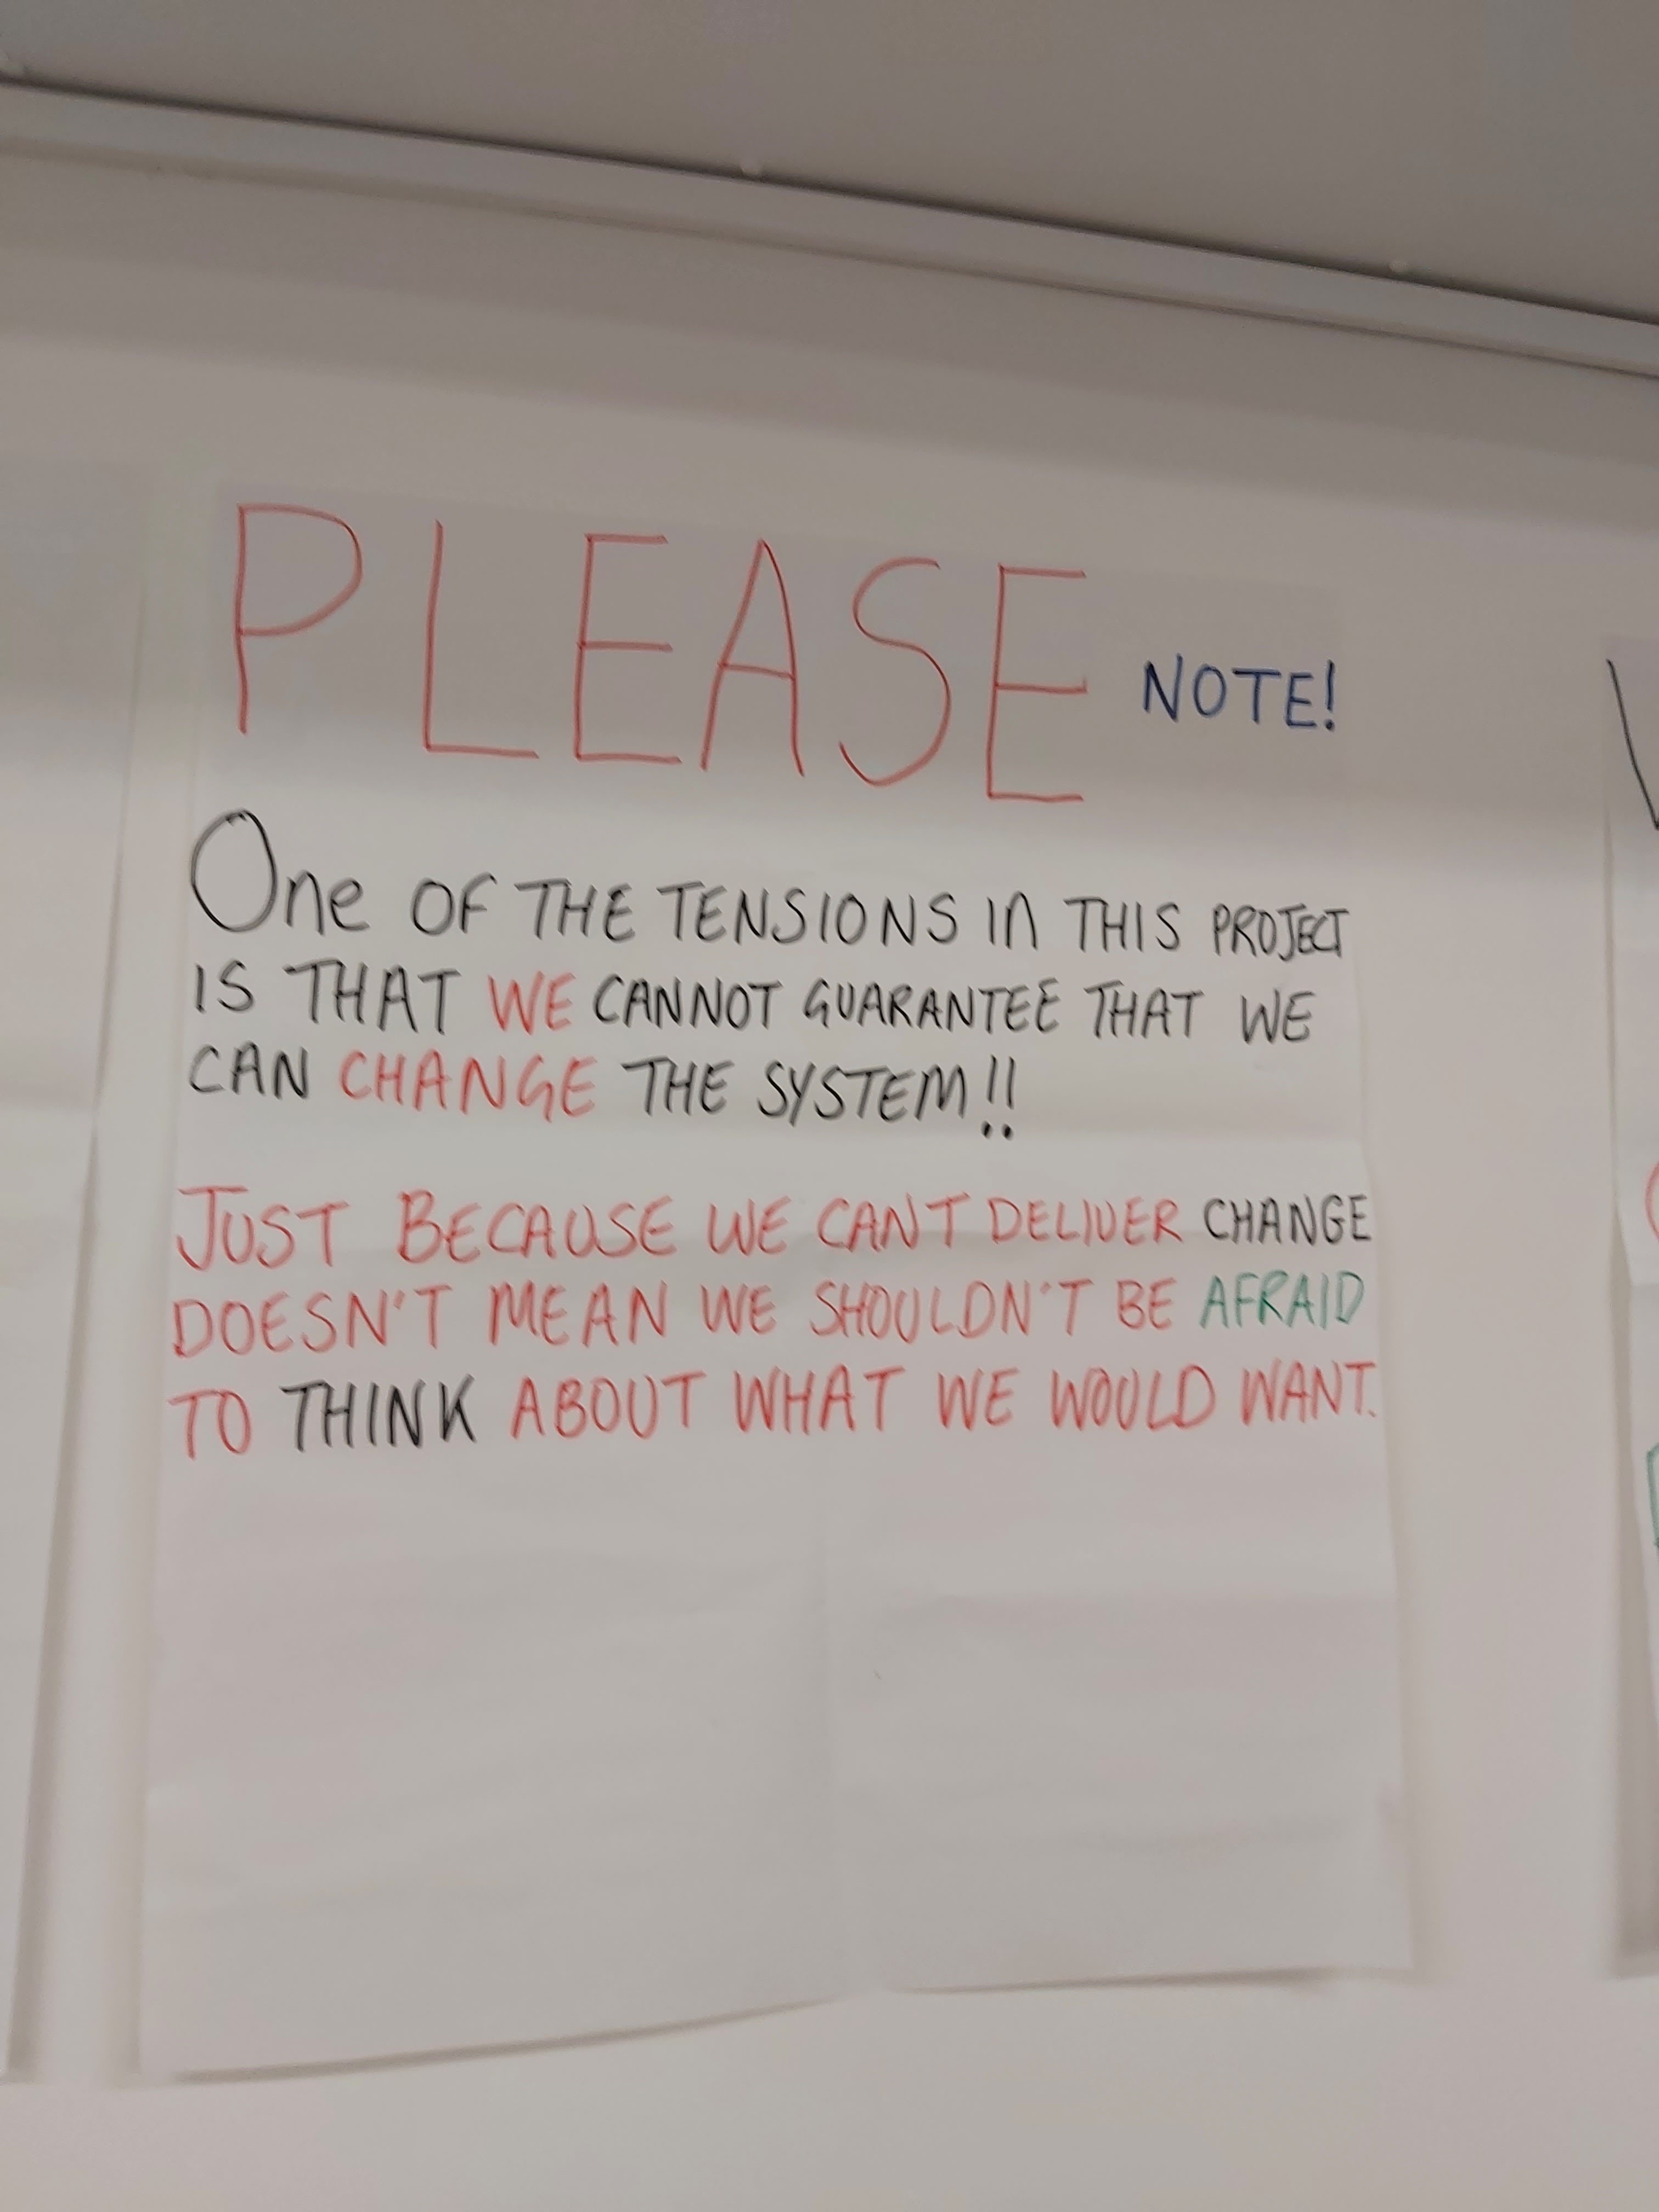 PLEASE NOTE!
One OF THE TENSIONS in THIS PROJECT
IS THAT WE CANNOT GUARANTEE THAT WE
CAN CHANGE THE SYSTEM!!
JUST BECAUSE WE CAN'T DELIVER CHANGE
DOESN'T MEAN WE SHOULDN'T BE AFRAID
TO THINK ABOUT WHAT WE WOULD WANT.